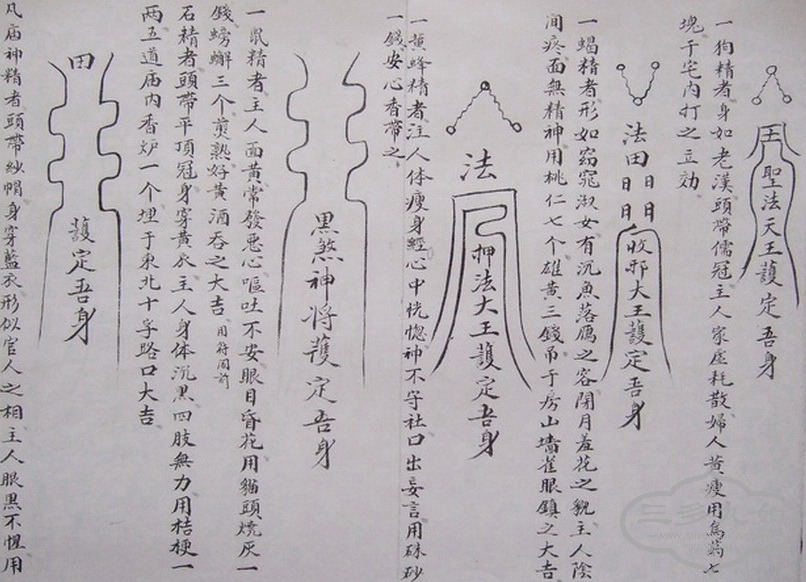 囯聖法天王護定吾身
一狗精者身如老漢頭帶儒冠主人家虛耗散婦人黃瘦用烏鷄七
塊于宅內打之立効
法田日日日日收邪大王護定吾身
一蝎精者形如窈窕淑女有沉魚落鴈之容閉月羞花之貌主人陰
间疼面無精神用桃仁七个雄黃三錢吊于房山墻雀眼鎮之大吉
法押法大王護定吾身
一黃蜂精者注人体瘦身經心中恍惚神不守社口出妄言用硃砂
一錢安心香帶之
黑煞神将護定吾身
一鼠精者主人面黃常發惡心嘔吐不安眼目昏花用貓頭燒灰一
錢螃蠏三个煎熟好黃酒吞之大吉用符同前
石精者頭帶平頂冠身穿黃衣主人身体沉黑四肢無力用桔梗一
两五道庙内香炉一个埋于東北十字路口大吉
田護定吾身
凡庙神精者頭帶紗帽身穿藍衣形似官人之相主人眼黑不惺用